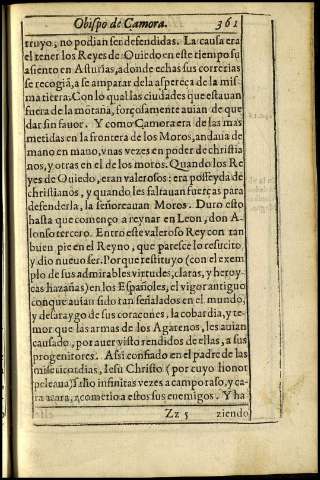 Obispo de Çamora. 361
truyo, no podian ser defendidas. La causa era
el tener los Reyes de Ouiedo en este tiempo su
asiento en Asturias, adonde echas sus correrias
se recogiã, a se amparar dela aspereça de la mis
ma tierra. Con lo qual las ciudades que estauan
fuera de la mõtaña, forçosamente auian de que
dar sin fauor. Y como Çamora era de las mas
metidas en la frontera de los Moros, andaua de
mano en mano, vnas vezes en poder de christia
nos, y otras en el de los moros. Quando los Re
yes de Ouiedo, eran valerosos: era posseyda de
christianos, y quando les faltauan fuerças para
defenderla, la señoreauan Moros. Duro esto
hasta que començo a reynar en Leon, don A-
lonso tercero. Entro este valeroso Rey con tan
buen pie en el Reyno, que paresce lo resucito,
y dio nueuo ser. Porque restituyo (con el exem
plo de sus admirables virtudes, claras, y heroy-
cas hazañas) en los Españoles, el vigor antiguo
con que auian sido tan señalados en el mundo,
y desarraygo de sus coraçones, la cobardia, y te-
mor que las armas de los Agarenos, les auian
causado, por auer visto rendidos de ellas, a sus
progenitores. Assi confiado en el padre de las
misericordias, Iesu Christo (por cuyo honor
peleaua) salio infinitas vezes a campo raso, y ca-
ra a cara, acometio a estos sus enemigos. Y ha
Zz 5 ziendo